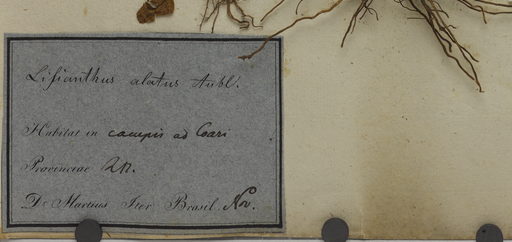 Lisianthus alatus Aubl.
Habitat in campis ad Coari
Provinciae
D. Martius Iter Brasil. Nov.